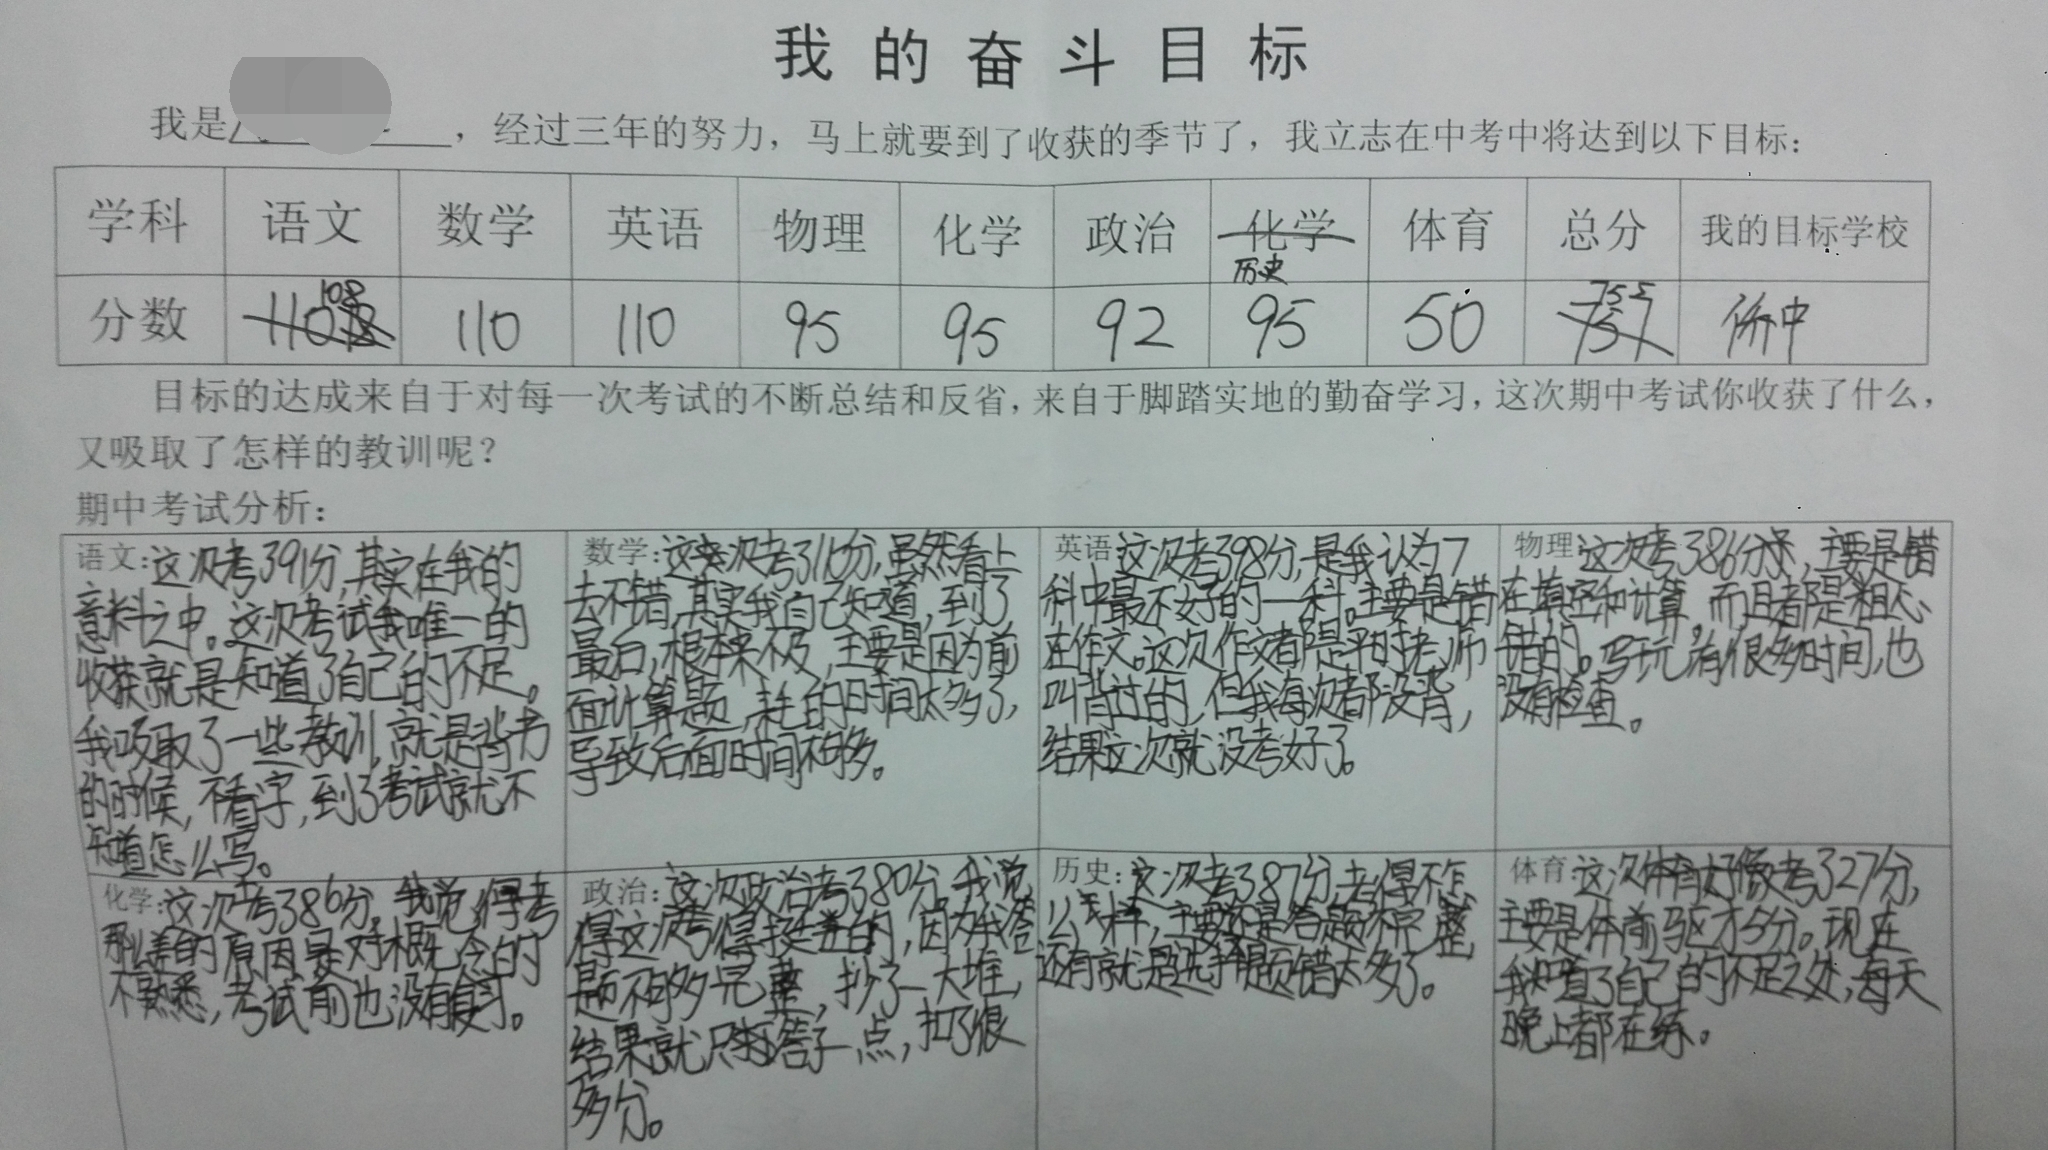 我的奋斗目标
我是 ，经过三年的努力，马上就要到了收获的季节了，我立志在中考中将达到以下目标：
学科 语文 数学 英语 物理 化学 政治 化学 体育 总分 我的目标学校
历史
108 755
分数 110 110 110 95 95 92 95 50 757 侨中
目标的达成来自于对每一次考试的不断总结和反省，来自于脚踏实地的勤奋学习，这次期中考试你收获了什么，
又吸取了怎样的教训呢？
期中考试分析：
语文：这次考391分，其实在我的
意料之中。这次考试我唯一的
收获就是知道了自己的不足。
我吸取了一些教训，就是背书
的时候，不看字，到了考试就不
知道怎么写。
数学：这次考311分，虽然看上
去不错，其实我自己知道，到了
最后，根本来不及，主要是因为前
面计算题，耗的时间太多了，
导致后面时间不够多。
英语 这次考398分，是我认为7
科中最不好的一科。主要是错
在作文。这次作文都是平时老师
叫背过的，但我每次都没背，
结果这次就没考好了。
物理 这次考386分，主要是错
在填空和计算，而且都是粗心
错的。写玩，有很多时间，也
没有检查。
化学：这次考386分，我觉得考
那么差的原因是对概念的
不熟悉，考试前也没有复习。
政治：这次政治考380分，我觉
得这次考得挺差的，因为我答
题不够多完整，抄了一大堆，
结果就只答了一点，扣了很
多分。
历史：这次考387分，考得不怎
么样，主要还是答题不完整，
还有就是选择题错太多了。
体育 这次体育好像考327分，
主要是体前驱才多分。现在
我知道了自己的不足之处，每天
晚上都在练。